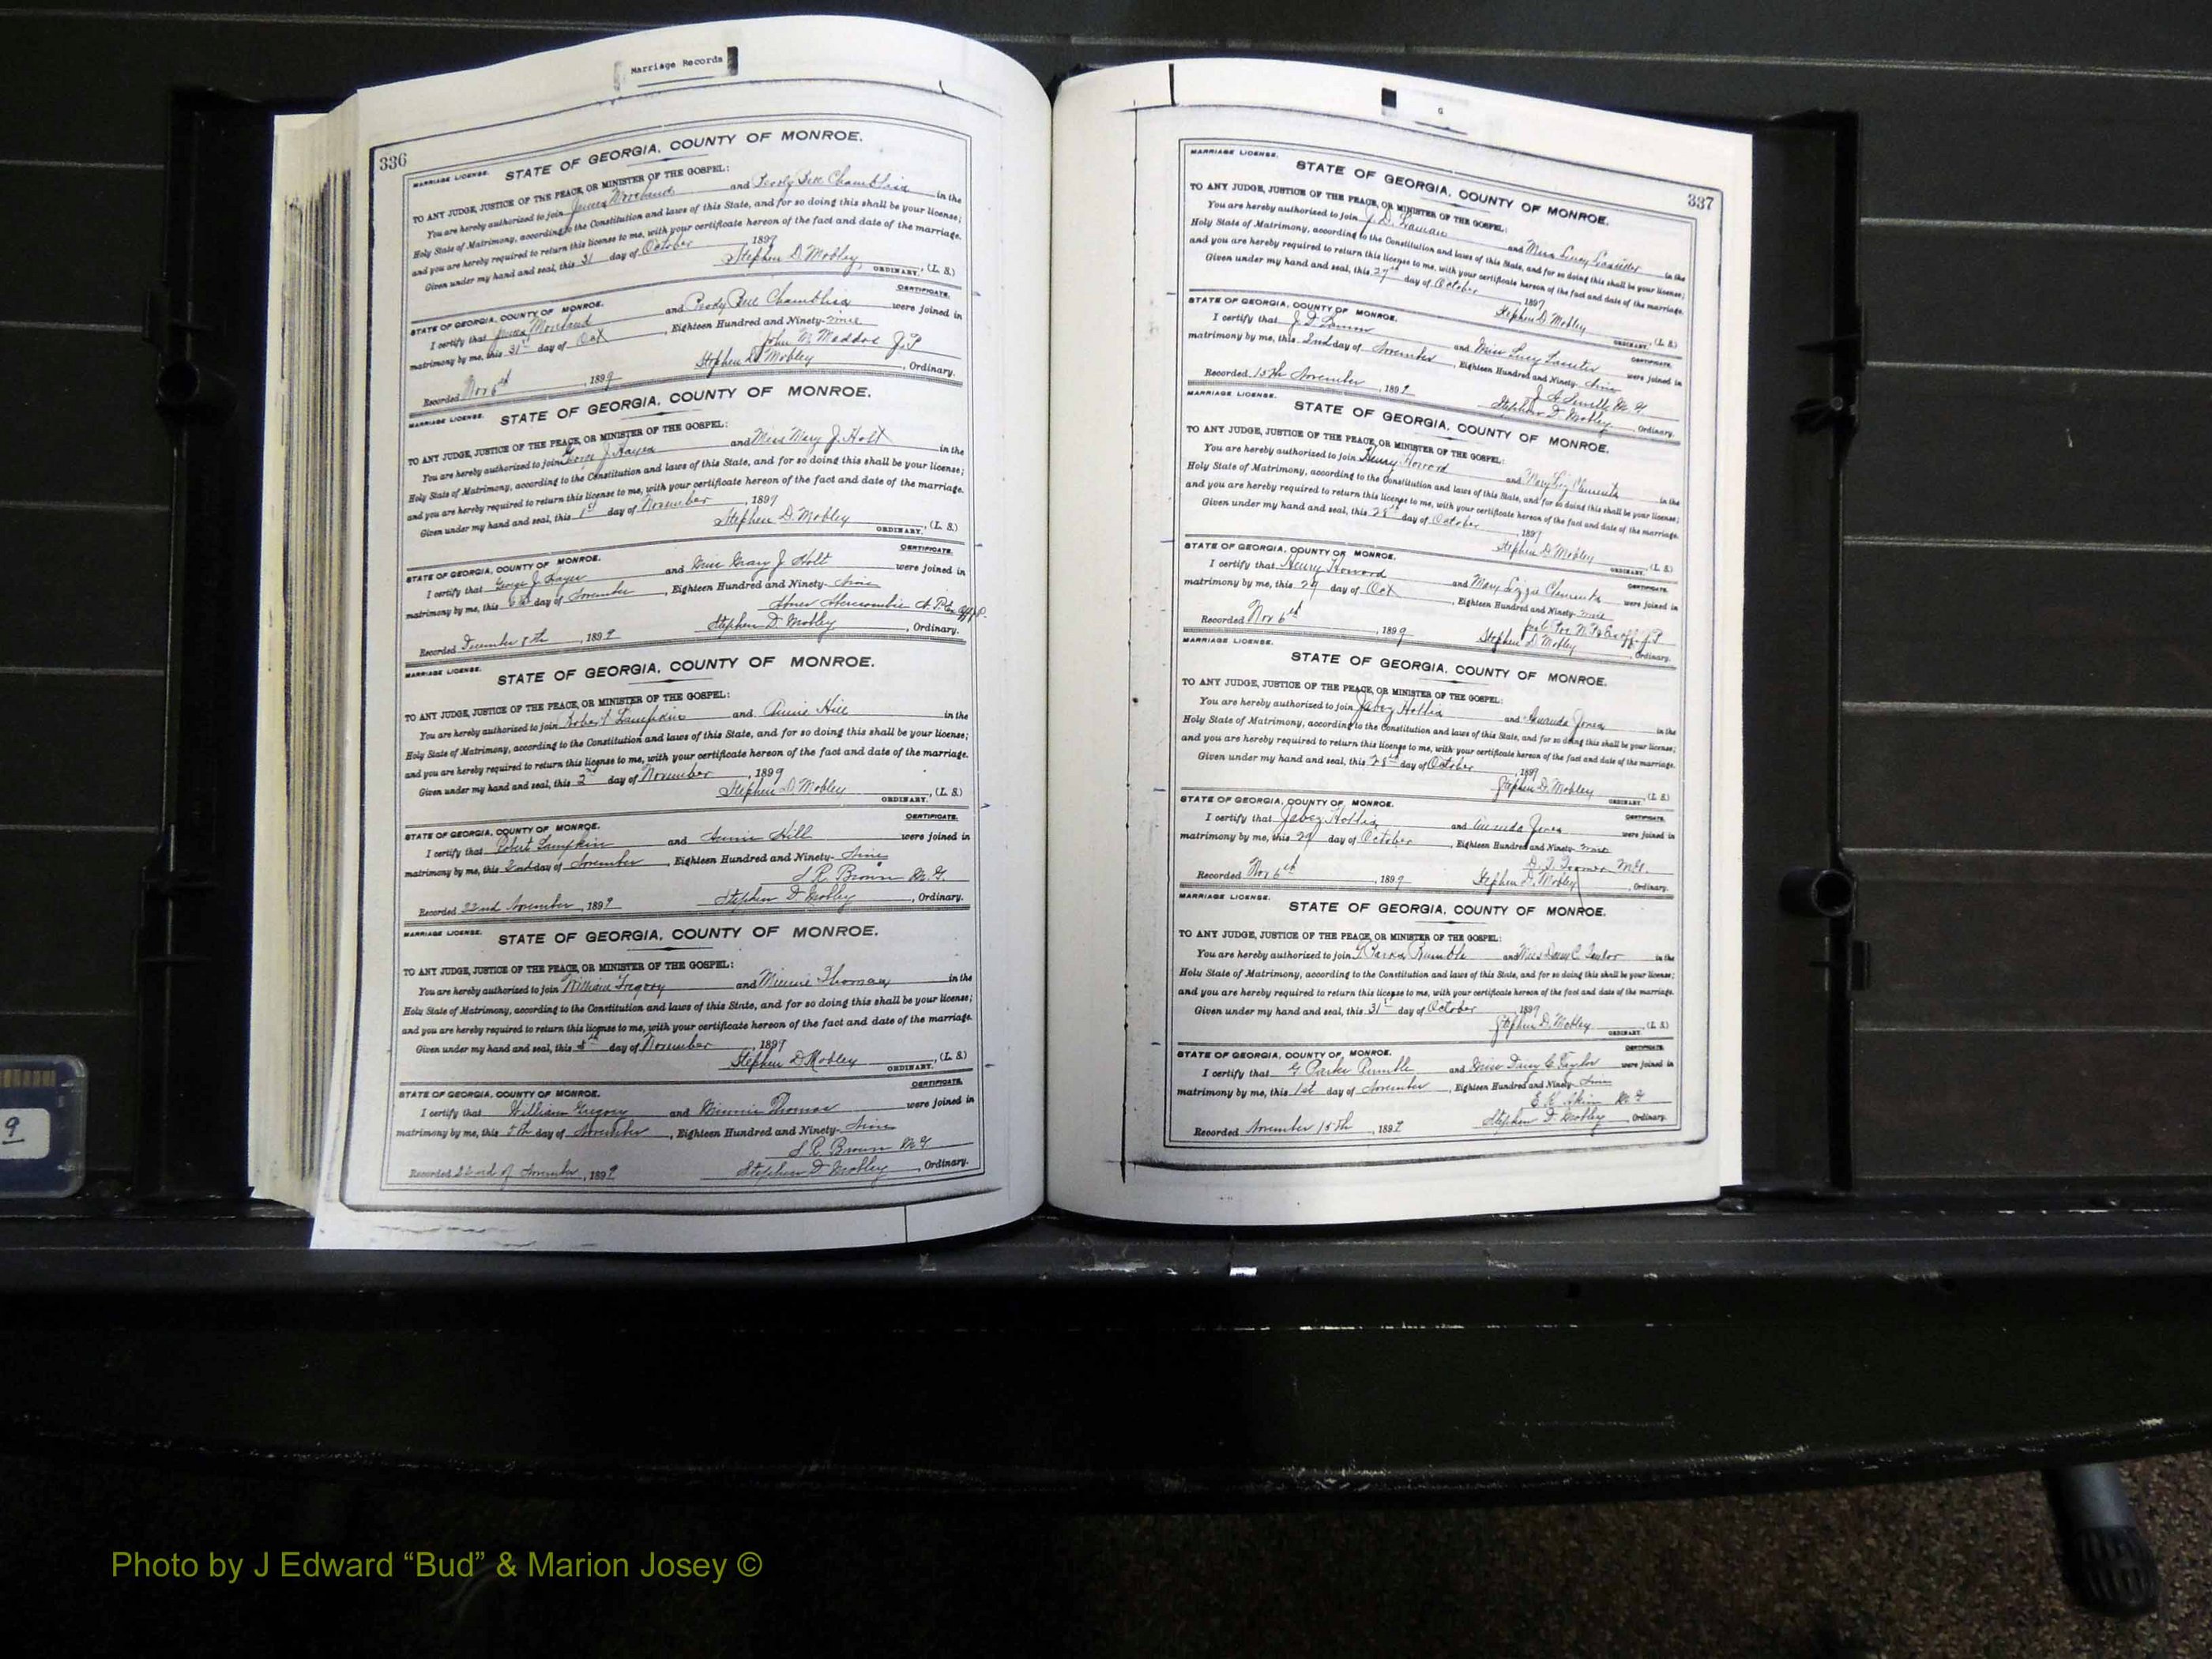 Marriage Records
336
MARRIAGE LICENSE. STATE OF GEORGIA, COUNTY OF MONROE.
TO ANY JUDGE, JUSTICE OF THE PEACE, OR MINISTER OF THE GOSPEL:
You are hereby authorized to join James Moreland and Perdy Bell Chambliss in the
Holy State of Matrimony, according to the Constitution and laws of this State, and for so doing this shall be your license;
and you are hereby required to return this license to me, with your certificate hereon of the fact and date of the marriage.
Given under my hand and seal, this 31 day of October, 1899
Stephen D. Mobley, (L. S.)
ORDINARY.
CERTIFICATE.
STATE OF GEORGIA, COUNTY OF MONROE.
I certify that James Moreland and Perdy Bell Chambliss were joined in
matrimony by me, this 31st day of Oct, Eighteen Hundred and Ninety-nine
John W. Maddox J.P.
Recorded Nov 6th, 1899 Stephen D. Mobley, Ordinary.
MARRIAGE LICENSE. STATE OF GEORGIA, COUNTY OF MONROE.
TO ANY JUDGE, JUSTICE OF THE PEACE, OR MINISTER OF THE GOSPEL:
You are hereby authorized to join George J. Hayes and Miss Mary J. Holt in the
Holy State of Matrimony, according to the Constitution and laws of this State, and for so doing this shall be your license;
and you are hereby required to return this license to me, with your certificate hereon of the fact and date of the marriage.
Given under my hand and seal, this 1st day of November, 1899
Stephen D. Mobley, (L. S.)
ORDINARY.
CERTIFICATE.
STATE OF GEORGIA, COUNTY OF MONROE.
I certify that George J. Hayes and Miss Mary J. Holt were joined in
matrimony by me, this day of November, Eighteen Hundred and Ninety-nine
Abner Abercrombie N.P. Ex off J.P.
Recorded December 8th, 1899 Stephen D. Mobley, Ordinary.
MARRIAGE LICENSE. STATE OF GEORGIA, COUNTY OF MONROE.
TO ANY JUDGE, JUSTICE OF THE PEACE, OR MINISTER OF THE GOSPEL:
You are hereby authorized to join Robert Lampkin and Annie Hill in the
Holy State of Matrimony, according to the Constitution and laws of this State, and for so doing this shall be your license;
and you are hereby required to return this license to me, with your certificate hereon of the fact and date of the marriage.
Given under my hand and seal, this 2 day of November, 1899
Stephen D. Mobley, (L. S.)
ORDINARY.
CERTIFICATE.
STATE OF GEORGIA, COUNTY OF MONROE.
I certify that Robert Lampkin and Annie Hill were joined in
matrimony by me, this 2nd day of November, Eighteen Hundred and Ninety-nine
S R Brown M.G.
Recorded 22nd November, 1899 Stephen D. Mobley, Ordinary.
MARRIAGE LICENSE. STATE OF GEORGIA, COUNTY OF MONROE.
TO ANY JUDGE, JUSTICE OF THE PEACE, OR MINISTER OF THE GOSPEL:
You are hereby authorized to join William Gregory and Minnie Thomas in the
Holy State of Matrimony, according to the Constitution and laws of this State, and for so doing this shall be your license;
and you are hereby required to return this license to me, with your certificate hereon of the fact and date of the marriage.
Given under my hand and seal, this day of November, 1899
Stephen D. Mobley, (L. S.)
ORDINARY.
CERTIFICATE.
STATE OF GEORGIA, COUNTY OF MONROE.
I certify that William Gregory and Minnie Thomas were joined in
matrimony by me, this 5th day of November, Eighteen Hundred and Ninety-nine
S R Brown M G
Recorded 22nd of November, 1899 Stephen D. Mobley, Ordinary.
G
337
MARRIAGE LICENSE. STATE OF GEORGIA, COUNTY OF MONROE.
TO ANY JUDGE, JUSTICE OF THE PEACE, OR MINISTER OF THE GOSPEL:
You are hereby authorized to join J. D. and Miss Lucy in the
Holy State of Matrimony, according to the Constitution and laws of this State, and for so doing this shall be your license;
and you are hereby required to return this license to me, with your certificate hereon of the fact and date of the marriage.
Given under my hand and seal, this 27th day of October, 1899
Stephen D. Mobley, (L. S.)
ORDINARY.
CERTIFICATE.
STATE OF GEORGIA, COUNTY OF MONROE.
I certify that J. D. and Miss Lucy were joined in
matrimony by me, this 2nd day of November, Eighteen Hundred and Ninety-nine
M. G.
Recorded 15th November, 1899 Stephen D. Mobley, Ordinary.
MARRIAGE LICENSE. STATE OF GEORGIA, COUNTY OF MONROE.
TO ANY JUDGE, JUSTICE OF THE PEACE, OR MINISTER OF THE GOSPEL:
You are hereby authorized to join Henry Howard and Mary Liz Clements in the
Holy State of Matrimony, according to the Constitution and laws of this State, and for so doing this shall be your license;
and you are hereby required to return this license to me, with your certificate hereon of the fact and date of the marriage.
Given under my hand and seal, this 28th day of October, 1899
Stephen D. Mobley, (L. S.)
ORDINARY.
CERTIFICATE.
STATE OF GEORGIA, COUNTY OF MONROE.
I certify that Henry Howard and Mary Lizzie Clements were joined in
matrimony by me, this 29 day of Oct, Eighteen Hundred and Ninety-nine
Poe N.P. & Ex off. J.P.
Recorded Nov 6th, 1899 Stephen D. Mobley, Ordinary.
MARRIAGE LICENSE. STATE OF GEORGIA, COUNTY OF MONROE.
TO ANY JUDGE, JUSTICE OF THE PEACE, OR MINISTER OF THE GOSPEL:
You are hereby authorized to join Jabez Hollis and Amanda Jones in the
Holy State of Matrimony, according to the Constitution and laws of this State, and for so doing this shall be your license;
and you are hereby required to return this license to me, with your certificate hereon of the fact and date of the marriage.
Given under my hand and seal, this 28th day of October, 1899
Stephen D. Mobley, (L. S.)
ORDINARY.
CERTIFICATE.
STATE OF GEORGIA, COUNTY OF MONROE.
I certify that Jabez Hollis and Amanda Jones were joined in
matrimony by me, this 29 day of October, Eighteen Hundred and Ninety-nine
M.G.
Recorded Nov 6th, 1899 Stephen D. Mobley, Ordinary.
MARRIAGE LICENSE.
STATE OF GEORGIA, COUNTY OF MONROE.
TO ANY JUDGE, JUSTICE OF THE PEACE, OR MINISTER OF THE GOSPEL:
You are hereby authorized to join G Parks Rumble and Miss Daisy C. Taylor in the
Holy State of Matrimony, according to the Constitution and laws of this State, and for so doing this shall be your license;
and you are hereby required to return this license to me, with your certificate hereon of the fact and date of the marriage.
Given under my hand and seal, this 31st day of October, 1899
Stephen D. Mobley, (L. S.)
ORDINARY.
CERTIFICATE.
STATE OF GEORGIA, COUNTY OF MONROE.
I certify that G Parks Rumble and Miss Daisy C Taylor were joined in
matrimony by me, this 1st day of November, Eighteen Hundred and Ninety-nine
E K Akin M G
Recorded November 15th, 1899 Stephen D. Mobley, Ordinary.
9
Photo by J Edward “Bud” & Marion Josey ©